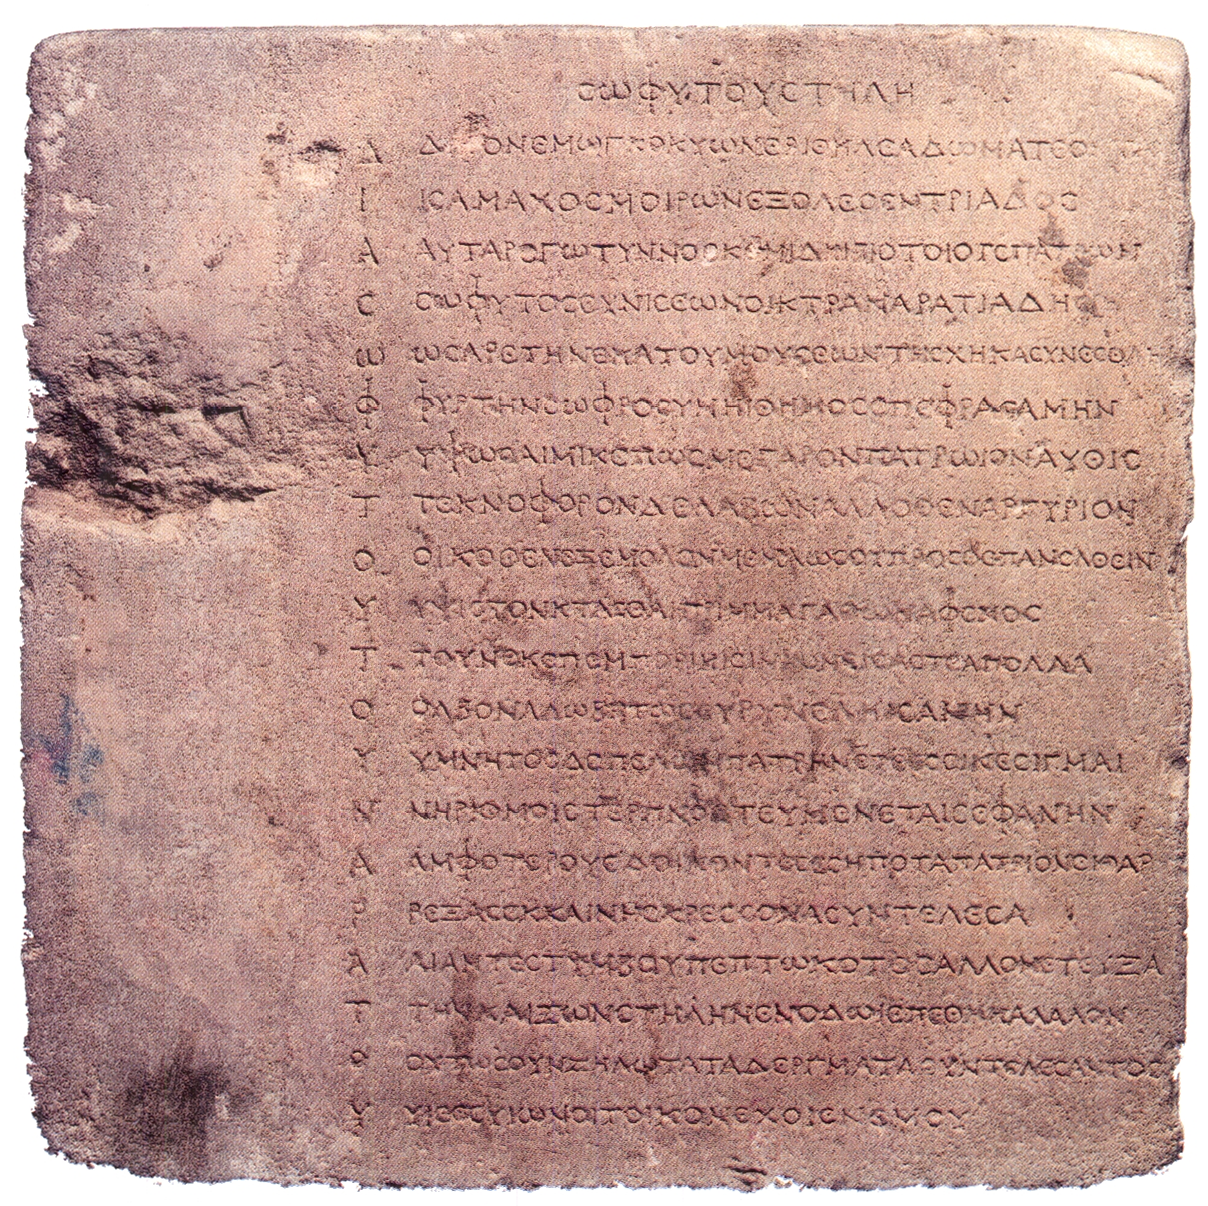 ϹΩΦΥΤΟΥϹΤΗΛΗ
Δ ΔΗΡΟΝΕΜΩΓΚΟΚΥΩΝΕΡΙΘΗΛΕΑΔΩΜΑΤΕΟΝΤΑ
Ι ΙϹΑΜΑΧΟϹΜΟΙΡΩΝΕΞΟΛΕϹΕΝΤΡΙΑΔΟϹ
Α ΑΥΤΑΡΕΓΩΤΥΝΝΟϹΚΟΜΙΔΗΙΒΙΟΤΟΙΟΤΕΠΑΤΡΩΝ
Ϲ ϹΩΦΥΤΟϹΕΥΝΙϹΕΩΝΟΙΚΤΡΑΝΑΡΑΤΙΑΔΗϹ
Ω ΩϹΑΡΕΤΗΝΕΚΑΤΟΥΜΟΥϹΕΩΝΤΗϹΧΗΚΑϹΥΝΕϹΘΛΗΙ
Φ ΦΥΡΤΗΝϹΩΦΡΟϹΥΝΗΙΤΗΜΟϹΕΠΕΦΡΑϹΑΜΗΝ
Υ ΥΨΩϹΑΙΜΙΚΕΠΩϹΜΕΓΑΡΟΝΠΑΤΡΩΙΟΝΑΥΘΙϹ
Τ ΤΕΚΝΟΦΟΡΟΝΔΕΛΑΒΩΝΑΛΛΟΘΕΝΑΡΓΥΡΙΟΝ
Ο ΟΙΚΟΘΕΝΕΞΕΜΟΛΟΝΜΕΜΑΩϹΟΥΠΡΟϹΘΕΠΑΝΕΛΘΕΙΝ
Υ ΥΨΙϹΤΟΝΚΤΑϹΘΑΙΠΡΙΜΜΑΓΑΘΩΝΑΦΕΝΟϹ
Τ ΤΟΥΝΕΚΕΠΕΜΠΟΡΙΗΙϹΙΝΙΩΝΕΙϹΑϹΤΕΑΠΟΛΛΑ
Ο ΟΛΒΟΝΑΛΩΒΗΤΩϹΕΥΡΥΝΕΛΗΙϹΑΜΗΝ
Υ ΥΜΝΗΤΟϹΔΕΠΕΛΩΝΠΑΤΡΗΝΕΤΕΕϹϹΙΝΕϹΙΓΜΑΙ
Ν ΝΗΡΙΘΜΟΙϹΤΕΡΠΝΟϹΤΕΥΜΕΝΕΤΑΙϹΕΦΑΝΗΝ
Α ΑΜΦΟΤΕΡΟΥϹΔΟΙΚΟΝΤΕϹΕϹΗΠΟΤΑΠΑΤΡΙΟΝΕΙΘΑΡ
Ρ ΡΕΞΑϹΕΚΚΑΙΝΗϹΚΡΕϹϹΟΝΑϹΥΝΤΕΛΕϹΑ
Α ΑΙΑΝΤΕϹΤΥΜΒΟΥΠΕΠΤΩΚΟΤΟϹΑΛΛΟΝΕΤΕΥΞΑ
Τ ΤΗΝΚΑΙΖΩΝϹΤΗΛΗΝΕΝΟΔΩΙΕΠΕΘΗΚΑΛΑΛΟΝ
Ο ΟΥΤΩϹΟΥΝΖΗΛΩΤΑΤΑΔΕΡΓΜΑΤΑϹΥΝΤΕΛΕϹΑΝΤΟϹ
Υ ΥΙΕΕϹΥΙΩΝΟΙΤΟΙΚΟΝΕΧΟΙΕΝΕΜΟΥ